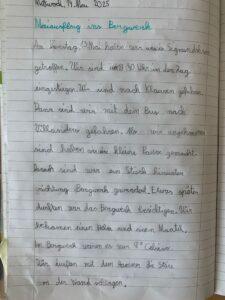 Mittwoch, 14. Mai 2025
Maiausflug ins Bergwerk
Am haben wir
getroffen. Wir sind um 30 Uhr in den Zug
eingestiegen. Wir sind nach Klausen gefahren.
Dann sind wir mit dem Bus nach
Villanders gefahren. Als wir angekommen
sind haben wir eine kleine Pause gemacht.
Danach sind wir ein Stück hinunter
richtung Bergwerk gewandert. Etwas später
durften wir das Bergwerk besichtigen. Wir
bekamen einen Helm und einen Mantel.
Im Bergwerk waren es nur 8° Celsius.
Wir durften mit dem Hammer die Steine
an der Wand schlagen.